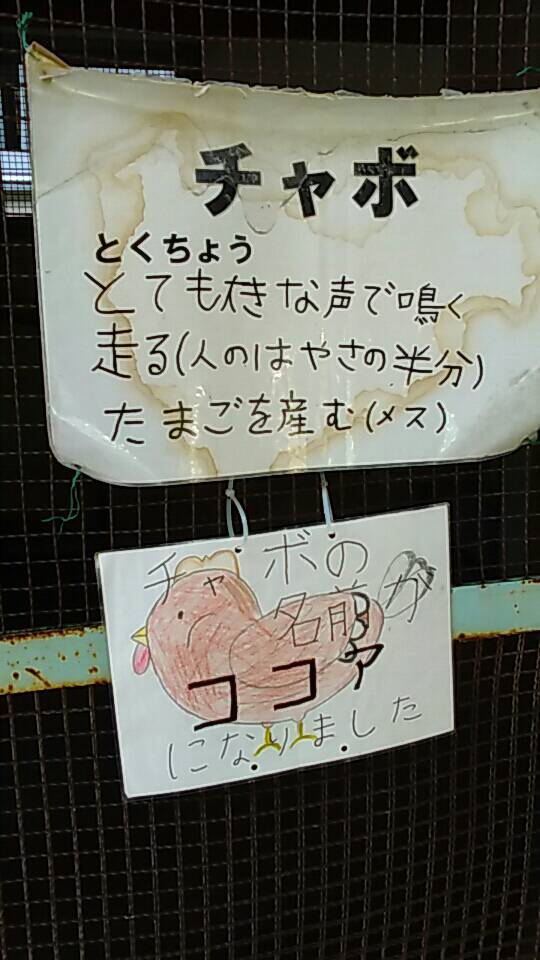 チャボ
とくちょう
とても大きな声で鳴く
走る(人のはやさの半分)
たまごを産む(メス)
チャボの
名前が
ココア
になりました